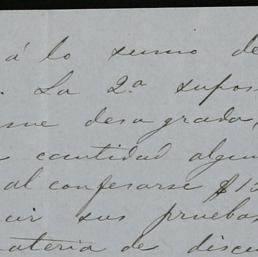 á lo sumo de
. La 2.ª supos
me desagrada,
cantidad algun
al confesarse $12
cir sus pruebas
materia de discu